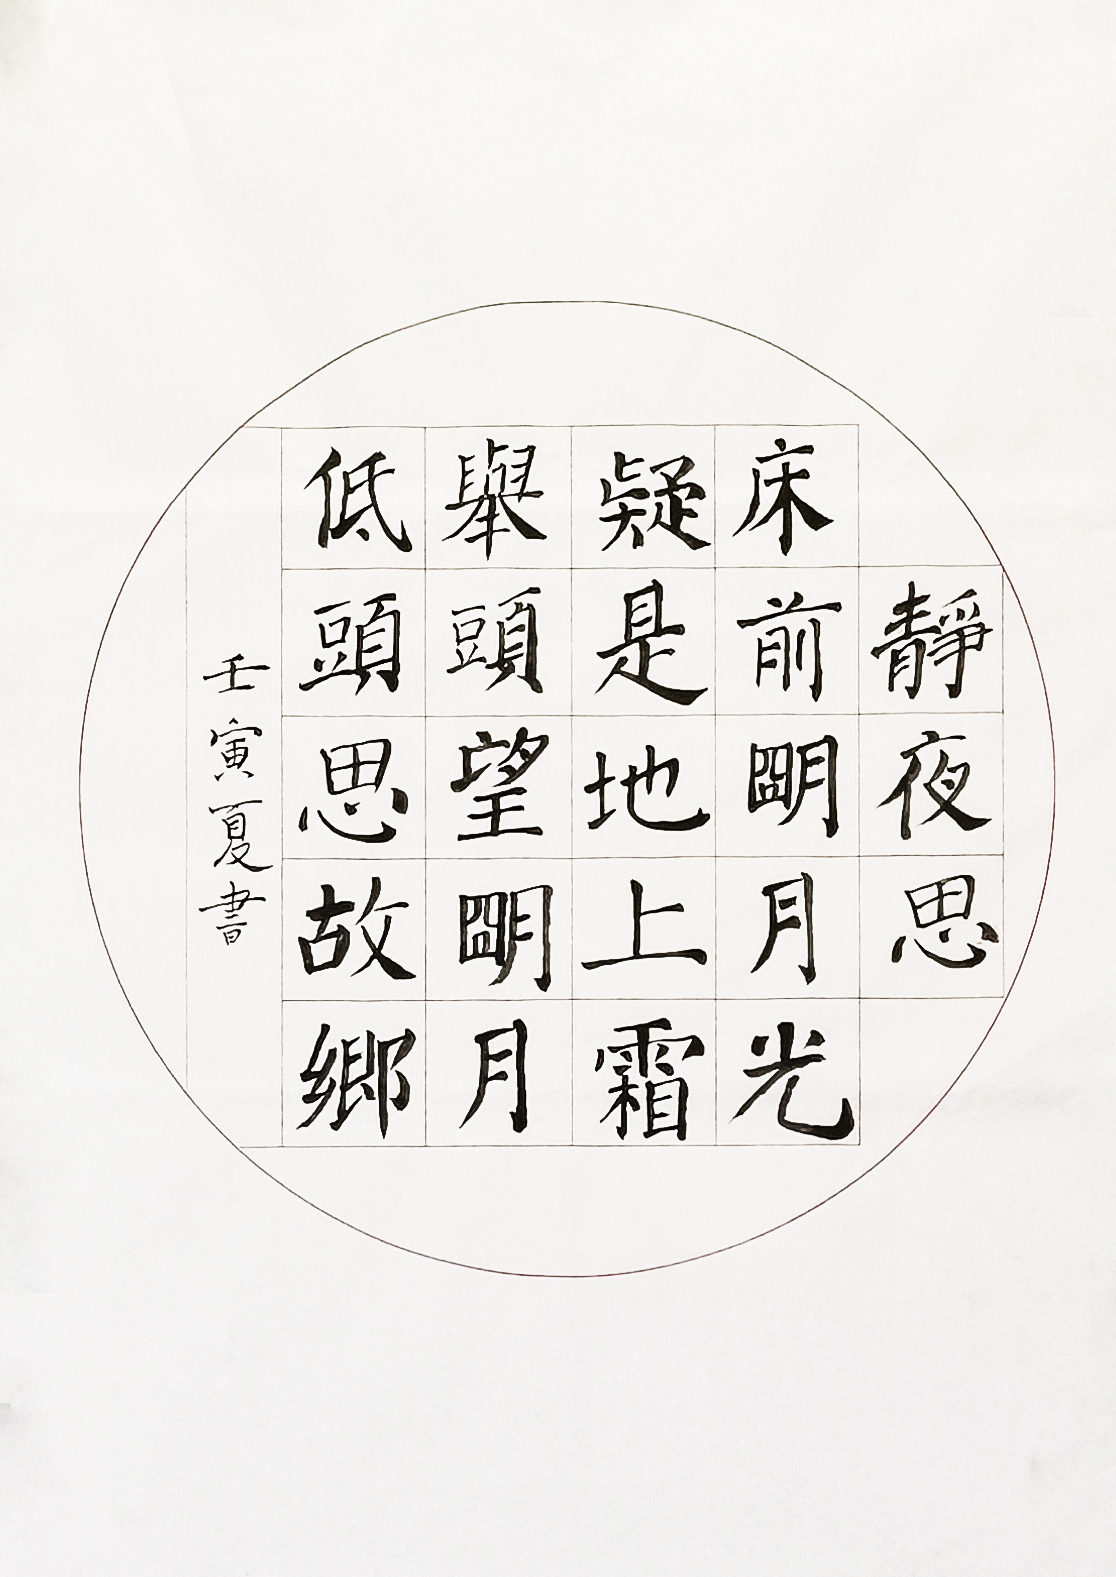 靜夜思
床前朙月光
疑是地上霜
舉頭望朙月
低頭思故鄉
壬寅夏書